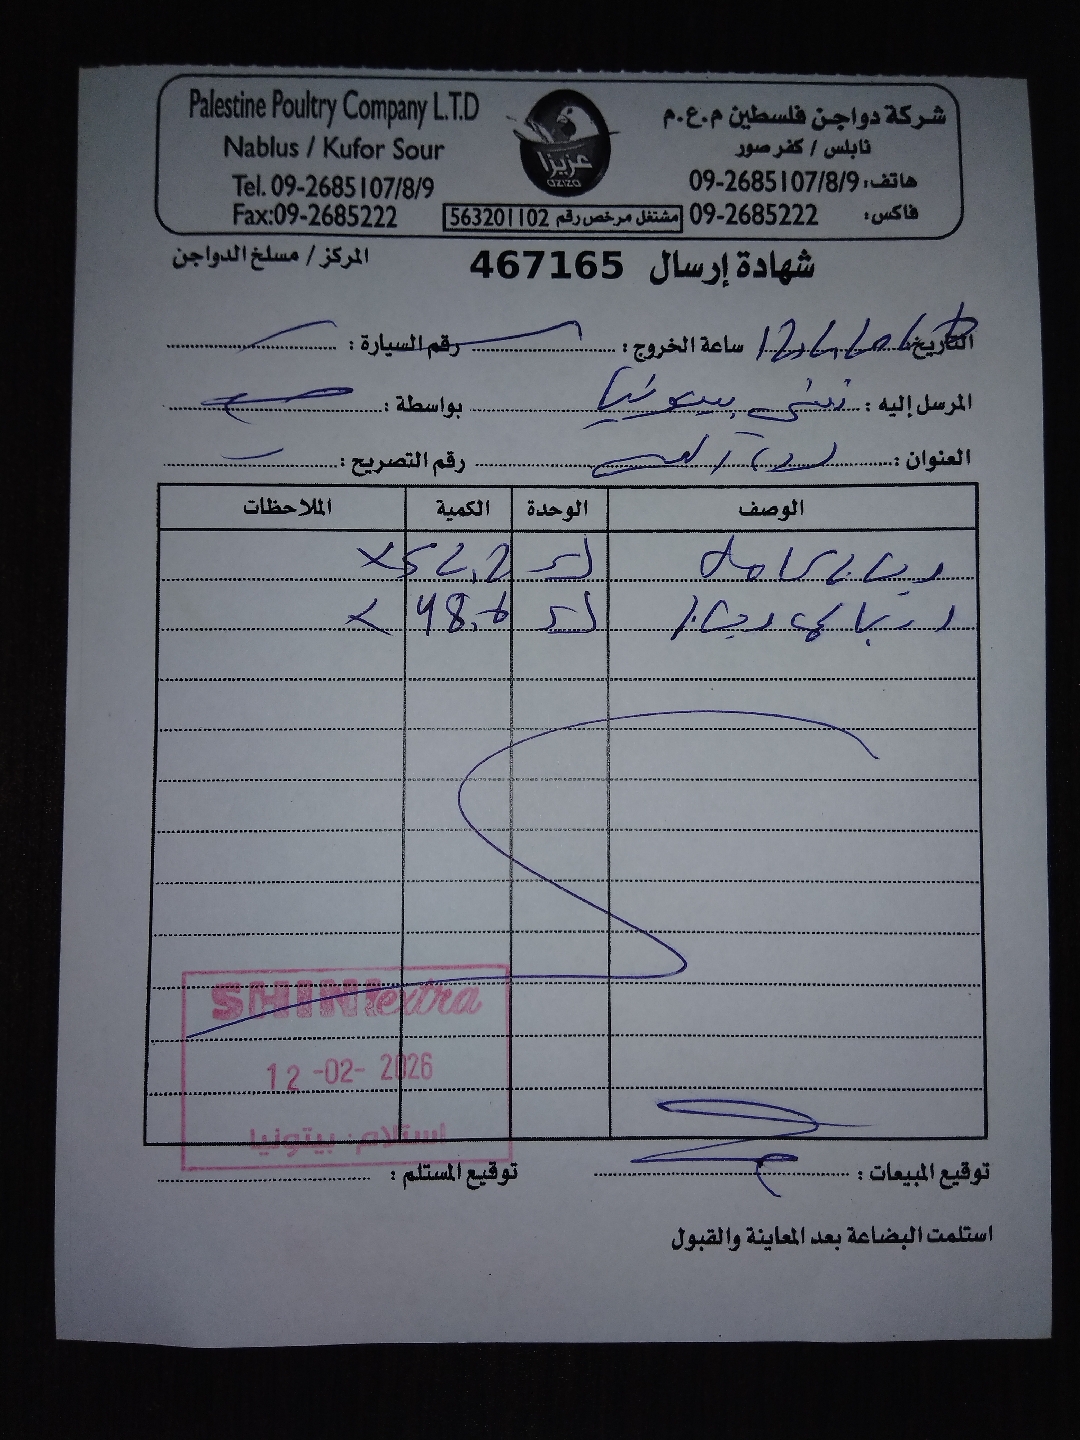 Palestine Poultry Company L.T.D
Nablus / Kufor Sour
Tel. 09-2685107/8/9
Fax:09-2685222
عزيزا
aziza
شركة دواجن فلسطين م.ع.م
نابلس / كفر صور
هاتف: 09-2685107/8/9
فاكس: 09-2685222
مشتغل مرخص رقم 563201102
شهادة إرسال 467165
المركز / مسلخ الدواجن
التاريخ: ساعة الخروج: رقم السيارة:
المرسل إليه: بيتونيا بواسطة:
العنوان: رقم التصريح:
الوصف الوحدة الكمية الملاحظات
52,2
48,6
SHINI extra
12-02-2026
استلام: بيتونيا
توقيع المبيعات: توقيع المستلم:
استلمت البضاعة بعد المعاينة والقبول